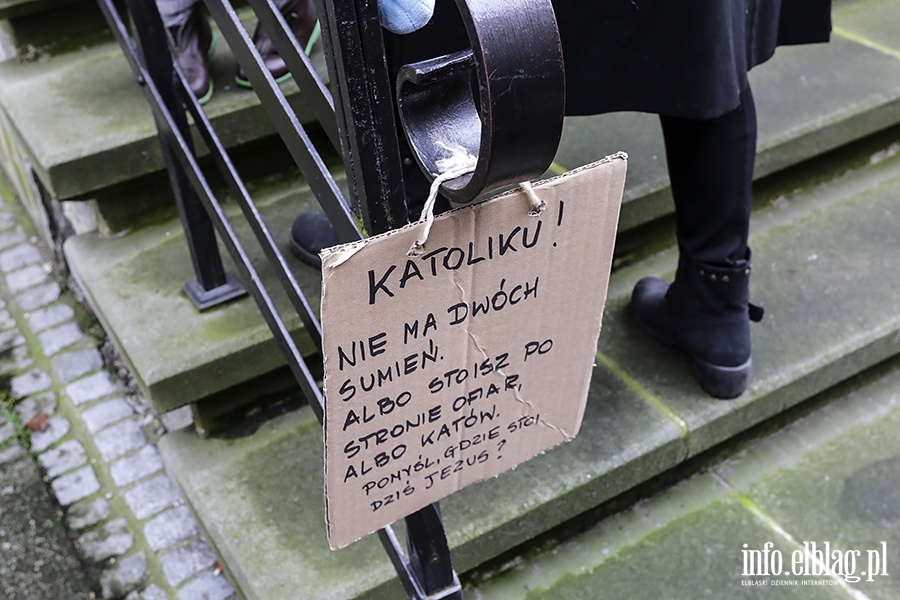 KATOLIKU!
NIE MA DWÓCH
SUMIEŃ.
ALBO STOISZ PO
STRONIE OFIAR,
ALBO KATÓW.
POMYŚL, GDZIE STOI
DZIŚ JEZUS?
info.elblag.pl
ELBLĄSKI DZIENNIK INTERNETOWY